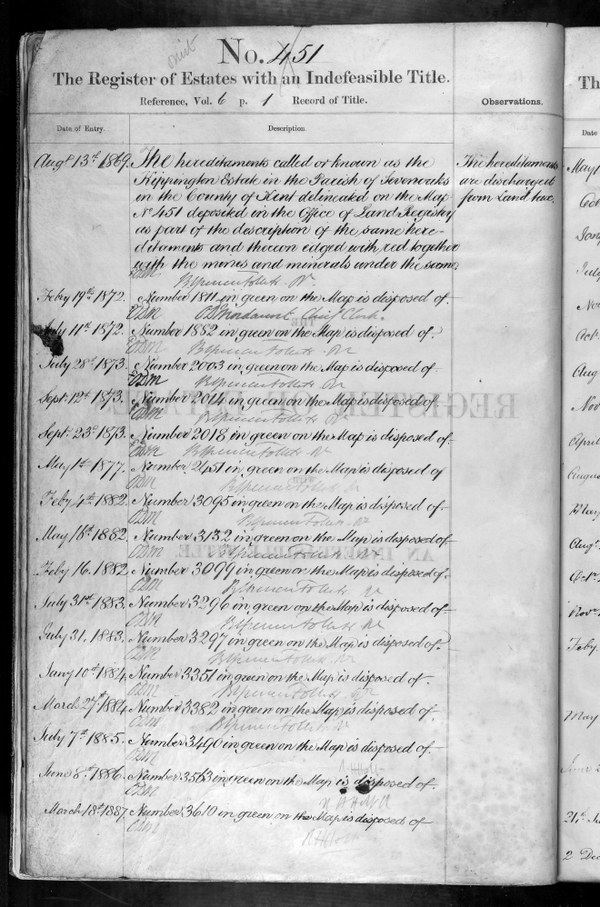 No. 451
The Register of Estates with an Indefeasible Title.
Reference, Vol. 6 p. 1 Record of Title.
Observations.
Date of Entry.
Description.
Augt. 13th 1869. The hereditaments called or known as the
Kippington Estate in the Parish of Sevenoaks
in the County of Kent delineated on the Map
No 451 deposited in the Office of Land Registry
as part of the description of the same here-
ditaments and thereon edged with red together
with the mines and minerals under the same
The hereditaments
are discharged
from Land tax.
Feby 19th 1872. Number 1811 in green on the Map is disposed of.
Chief Clerk.
July 11th 1872. Number 1882 in green on the Map is disposed of.
July 28th 1873. Number 2003 in green on the Map is disposed of-
Sept. 12th 1873. Number 2014 in green on the Map is disposed of
Sept. 23rd 1873. Number 2018 in green on the Map is disposed of-
May 1st 1877. Number 2451 in green on the Map is disposed of
Feby 4th 1882. Number 3095 in green on the Map is disposed of-
May 18th 1882. Number 3132 in green on the Map is disposed of-
Feby 16. 1882. Number 3099 in green on the Map is disposed of.
July 31st 1883. Number 3296 in green on the Map is disposed of-
July 31, 1883. Number 3297 in green on the Map is disposed of.
Jany 10th 1884. Number 3351 in green on the Map is disposed of.
March 27th 1884. Number 3382 in green on the Map is disposed of.
July 7th 1885. Number 3490 in green on the Map is disposed of
June 8th 1886. Number 3563 in green on the Map is disposed of.
March 18th 1887. Number 3610 in green on the Map is disposed of
Th
Date
May
July
Nov
April
Augt
Octr
Novr
Feby.
May
2 Dec